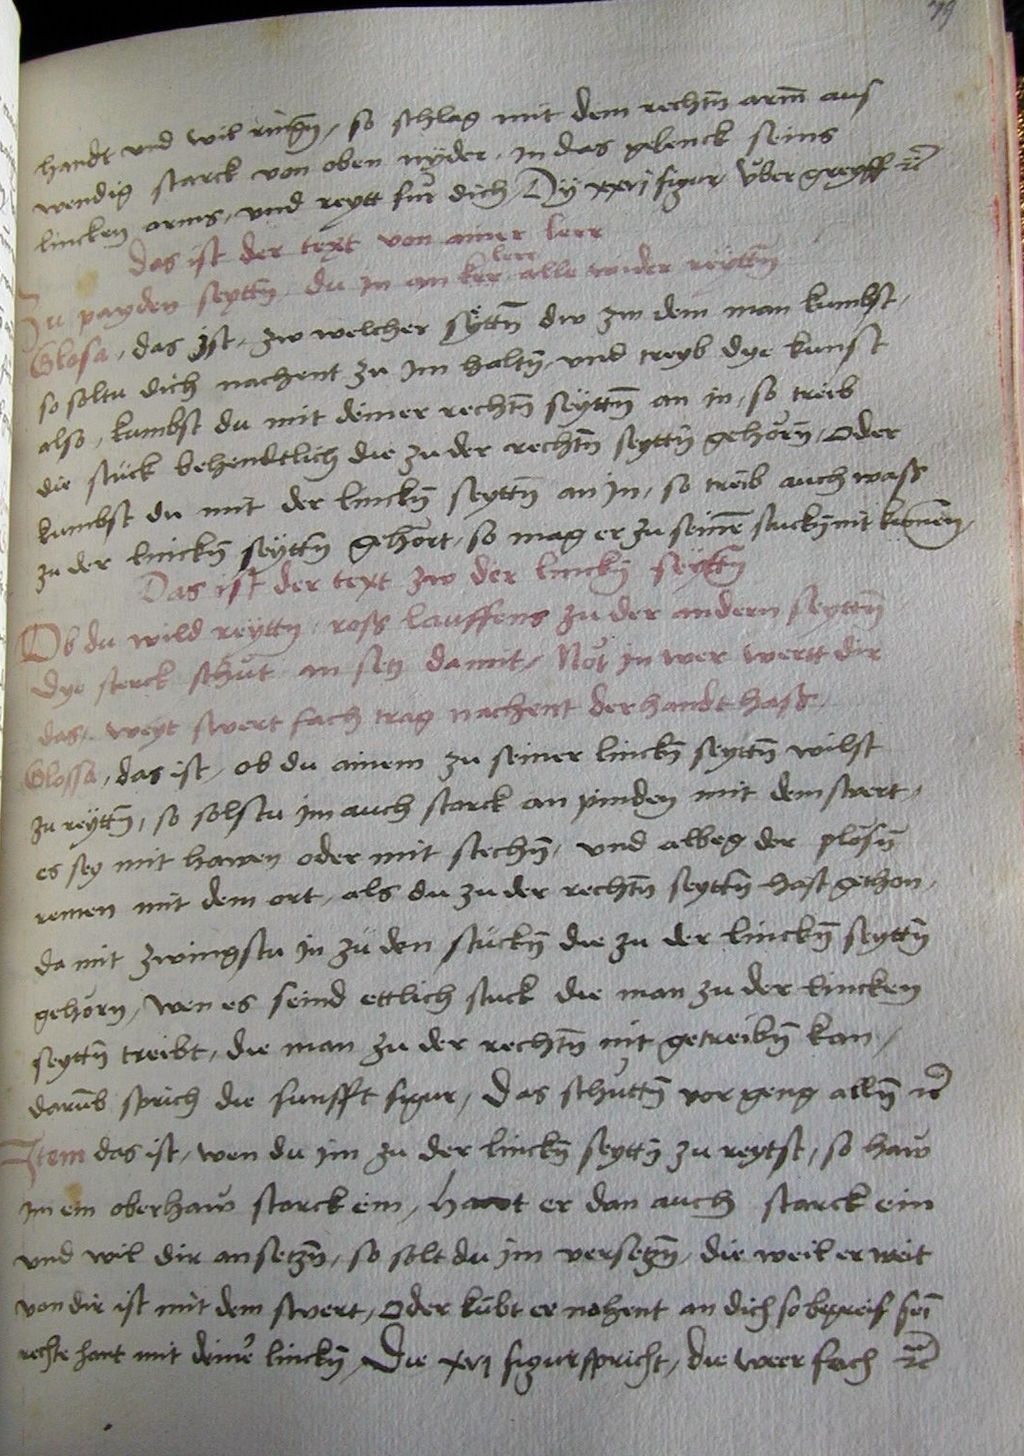 79
handt vnd wil ringñ / so schlag mit dem rechtñ arm̃ aus
wendig starck von oben nÿder / in das gelenck seins
lincken arms / vnd reytt fur dich / Dÿ xxvj figur vber greyff ꝛc̃
Das ist der text von ainer lere
Zu payden seyttñ / du in an ker lere alle wider reyttñ
Glosa / das ist / zw welcher seÿttñ dw zw dem man kumbst /
so soltu dich nachent zu im haltñ / vnd treyb dye kunst
also / kumbst du mit deiner rechtñ seyttñ an in / so treib
die stuck behendtlich die zu der rechtñ seyttñ gehorñ / Oder
kumbst du mit der linckñ seyttñ an in / so treib auch wass
zu der linckñ seyttñ gehort / so mag er zu seinẽ stuckñ nit kumen /
Das ist der text zw der linckñ seyttñ
Ob du wild reyttn / ross lauffens zu der andern seyttñ
Dye sterck schut an setz da mit / Not in wer wertt dir
das / weyt swert fach trag nachent der handt hass /
Glossa / das ist / ob du ainem zu seiner linckñ seyttñ wilst
zu reyttñ / so solstu im auch starck an pinden mit dem swert /
es sey mit hawen oder mit stechñ / vnd albeg der plosñ
remen mit dem ort / als du zu der rechtñ seyttñ hast gethon /
da mit zwingstu in zu den stuckñ die zu der linckñ seyttñ
gehorn / Wen es seind ettlich stuck die man zu der lincken
seyttñ treibt / die man zu der rechtñ nit getreibñ kan /
darũb sprich die funfft figur / Das schuttñ vor geng allñ ꝛc̃
Item das ist / wen du im zu der linckñ seyttñ zu reytst / so haw
im ein oberhaw starck ein / hawt er dan auch starck ein
vnd wil dir an setzñ / so solt du im versetzñ / die weil er weit
von dir ist mit dem swert / Oder kũbt er nahent an dich so begreif sei
rechte hant mit deiner linckñ / Die xvj figur spricht / die weer fach ꝛc̃